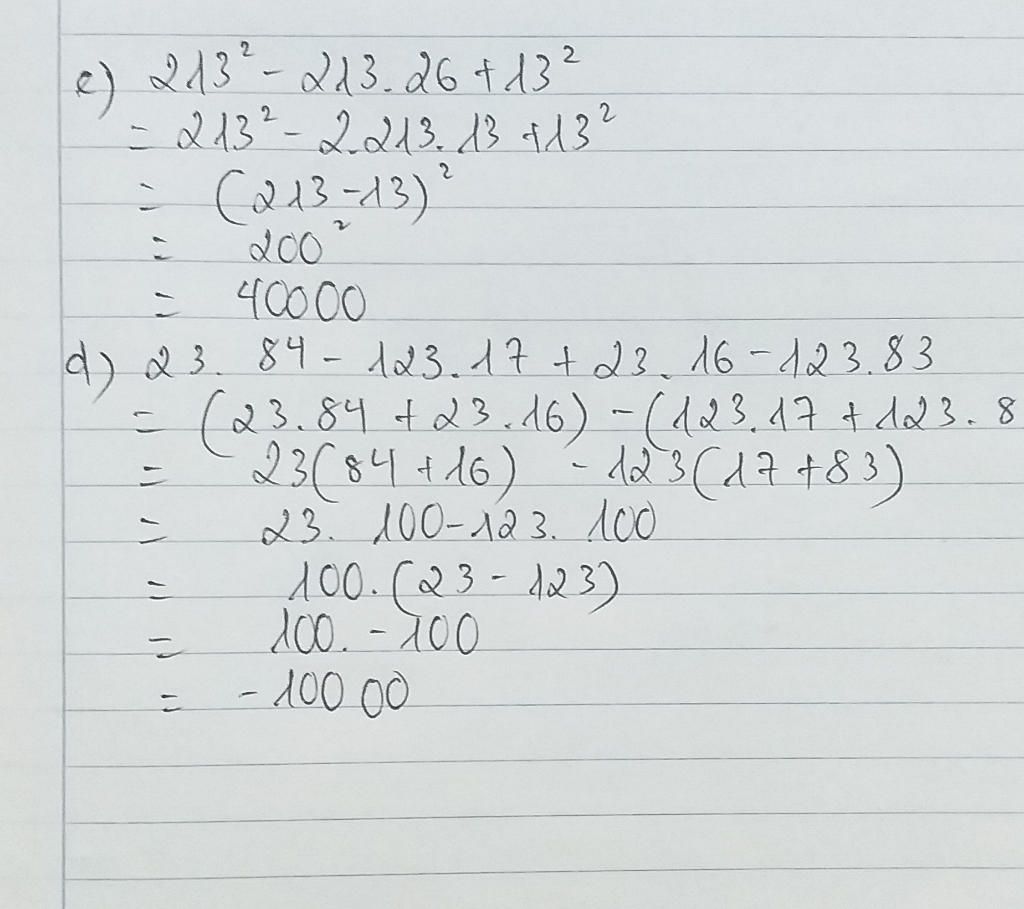 c) 213² - 213.26 + 13²
= 213² - 2.213.13 + 13²
= (213 - 13)²
= 200²
= 40000
d) 23. 84 - 123.17 + 23.16 - 123.83
= (23.84 + 23.16) - (123.17 + 123.8
= 23(84 + 16) - 123(17 + 83)
= 23. 100 - 123. 100
= 100.(23 - 123)
= 100. - 100
= - 10000